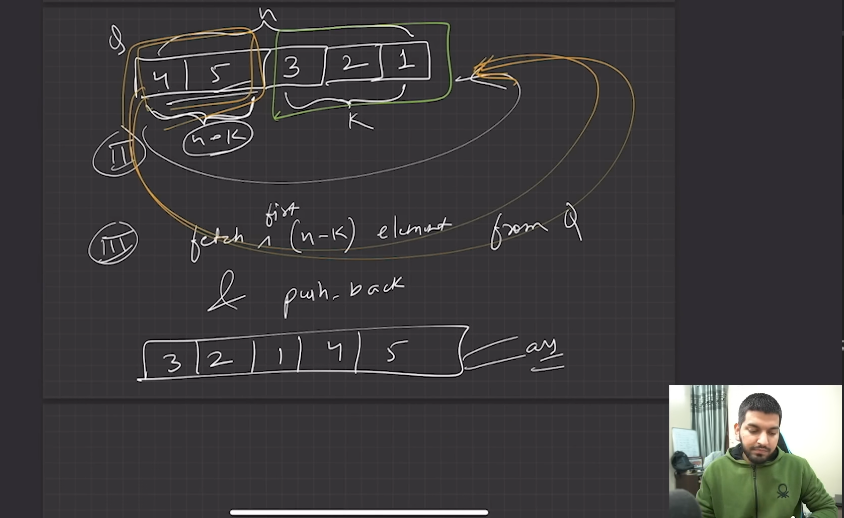 n
Q 4 5 3 2 1
n-k K
II
III fetch first (n-k) element from Q
& push-back
3 2 1 4 5 ans